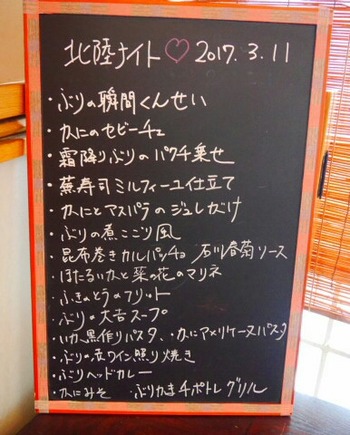 北陸ナイト♡2017.3.11
・ぶりの瞬間くんせい
・かにのセビーチェ
・霜降りぶりのパクチ乗せ
・蕪寿司ミルフィーユ仕立て
・かにとアスパラのジュレがけ
・ぶりの煮こごり風
・昆布巻きカルパッチョ 石川春菊ソース
・ほたるいかと菜の花のマリネ
・ふきのとうのフリット
・ぶり大吉スープ
・いか黒作りパスタ、・かにアメリケーヌパスタ
・ぶりの赤ワイン照り焼き
・ぶりヘッドカレー
・かにみそ ぶりかまチポトレグリル